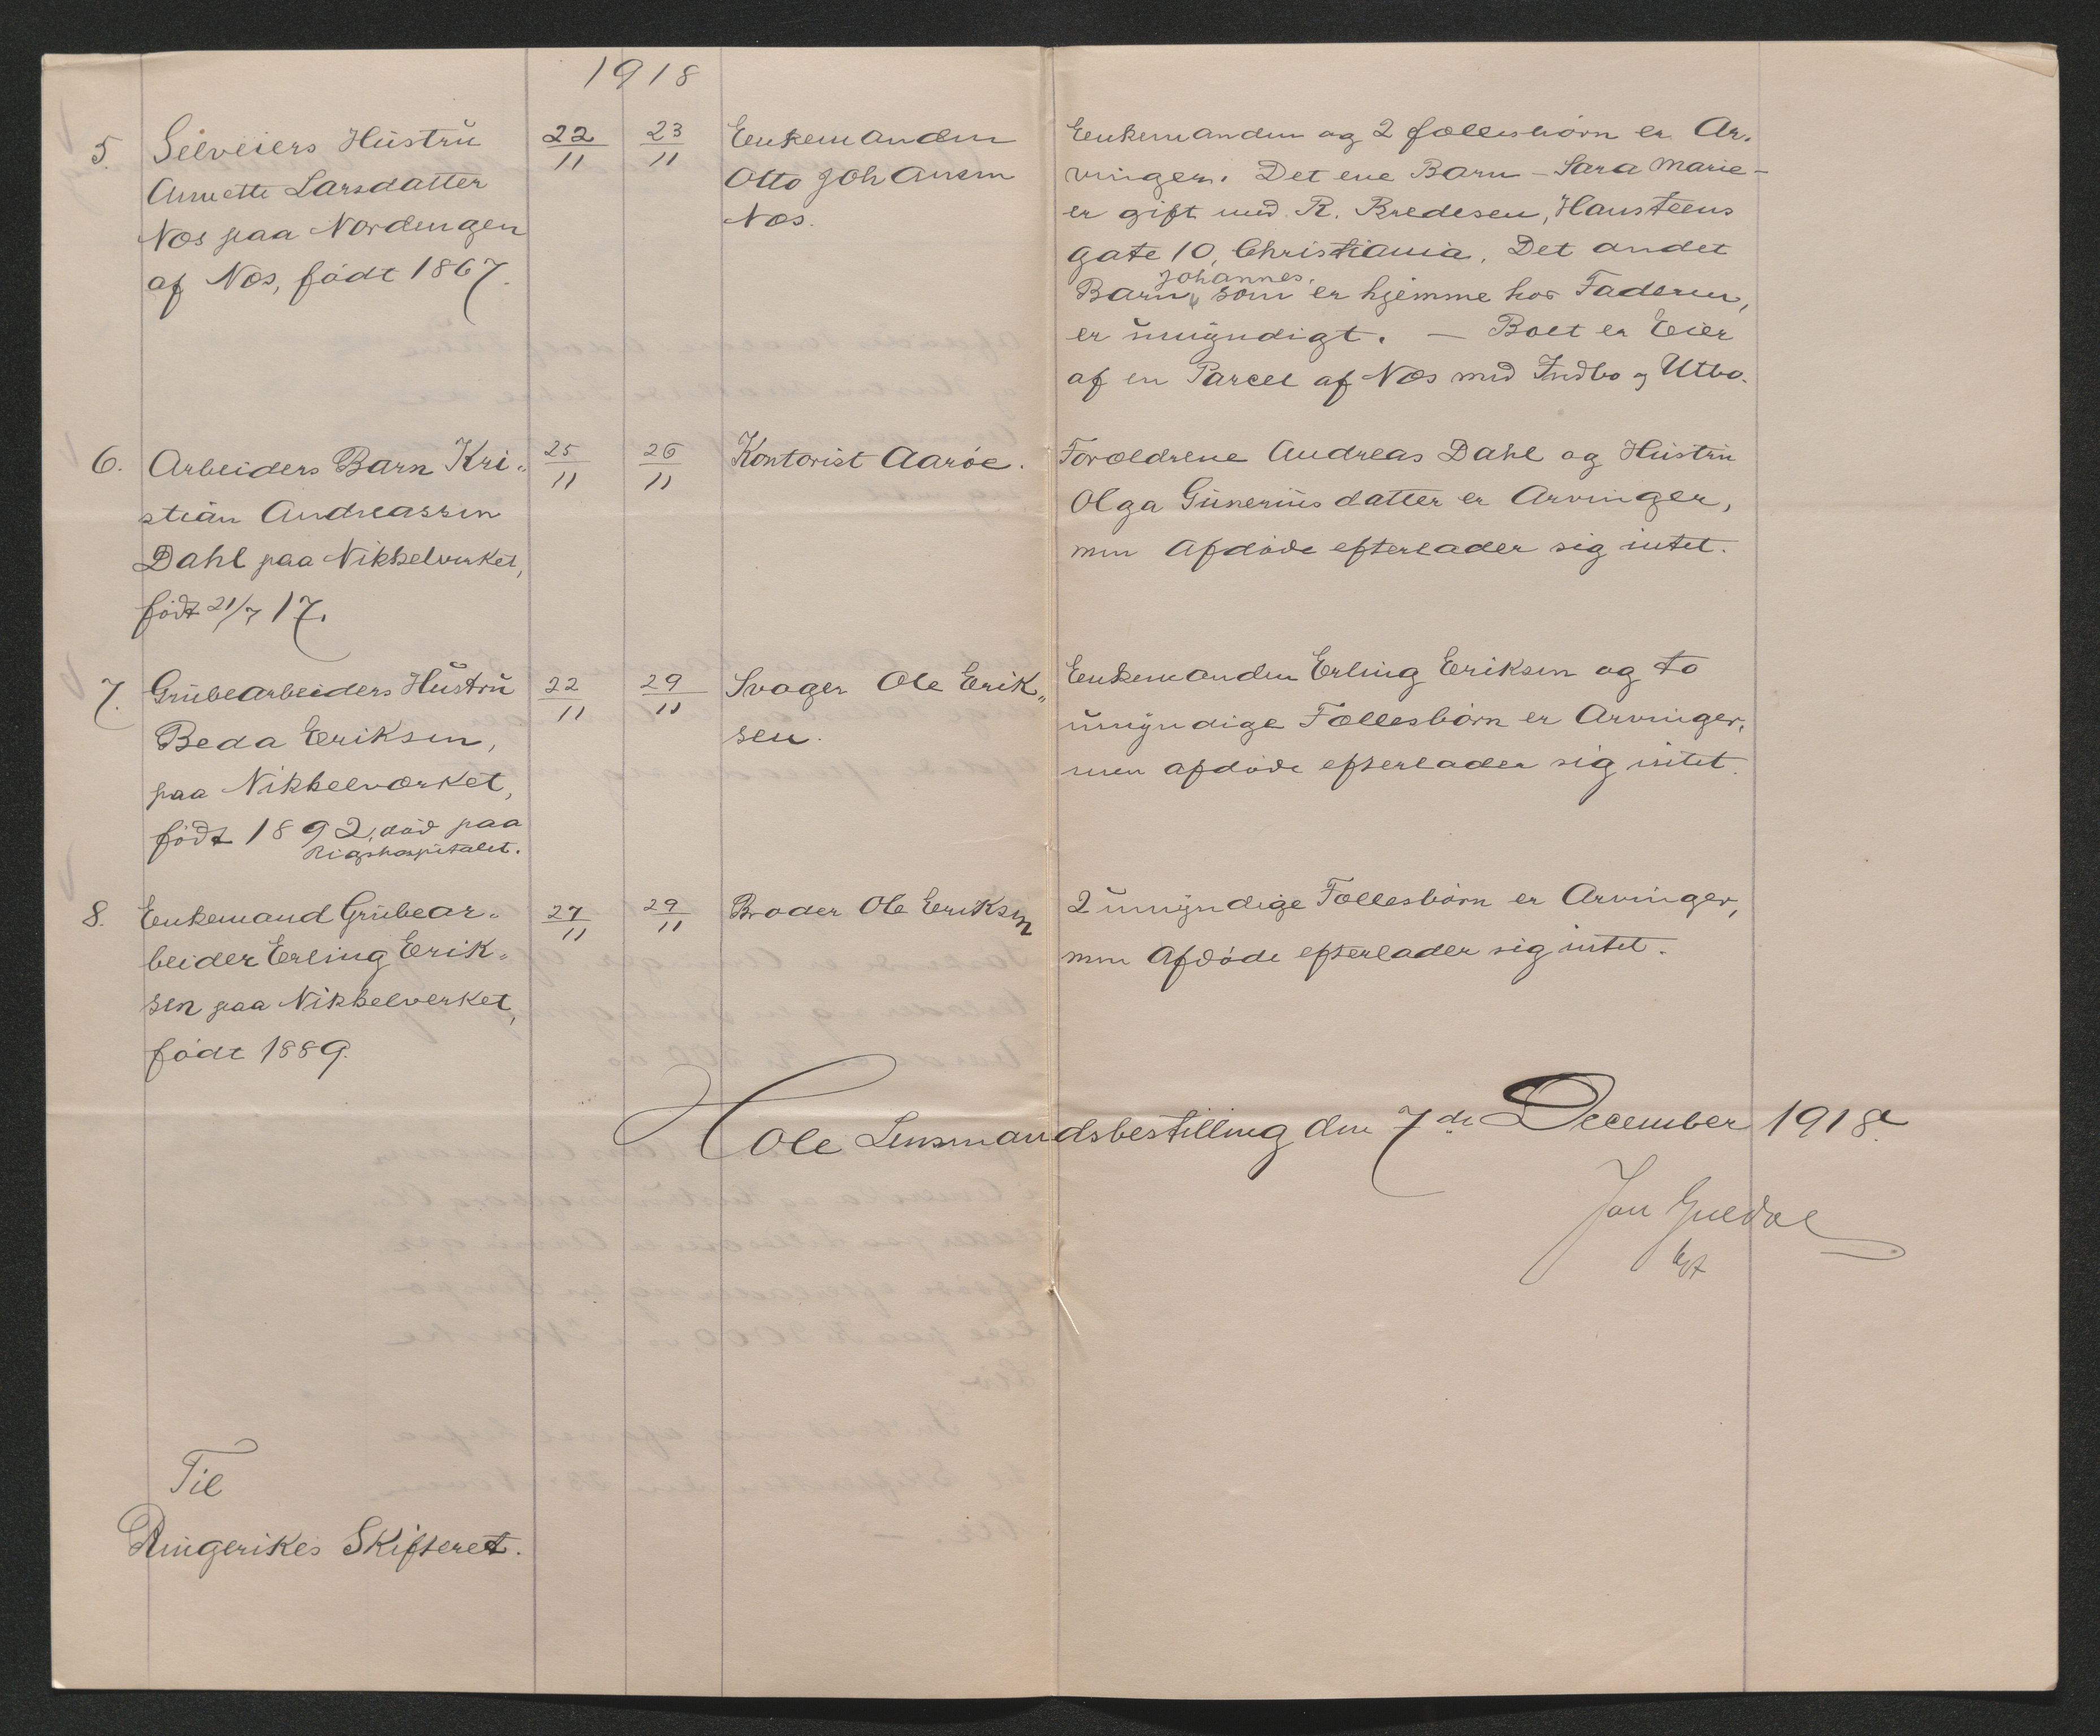 1918
5. Selveiers Hustru
Annette Larsdatter
Næs paa Nordengen
af Næs, født 1867.
22/11
23/11
Enkemanden
Otto Johansen
Næs.
Enkemanden og 2 fællesbörn er Ar-
vinger. Det ene Barn - Sara Marie -
er gift med R. Bredesen, Hansteens
gate 10, Christiania. Det andet
Johannes,
Barn, som er hjemme hos Faderen,
er umyndigt. — Boet er Eier
af en Parcel af Næs med Indbo og Utbo.
6. Arbeiders Barn Kri-
stian Andreassen
Dahl paa Nikkelverket,
född 21/7 17.
25/11
26/11
Kontorist Aaröe.
Forældrene Andreas Dahl og Hustru
Olga Guneriusdatter er Arvinger,
men Afdöde efterlader sig intet.
7. Grubearbeiders Hustru
Beda Eriksen,
paa Nikkelværket,
födt 1892, död paa
Rigshospitalet.
22/11
29/11
Svoger Ole Erik-
sen.
Enkemanden Erling Eriksen og to
umyndige Fællesbörn er Arvinger,
men afdöde efterlader sig intet.
8. Enkemand Grubear-
beider Erling Erik-
sen paa Nikkelverket,
födt 1889.
27/11
29/11
Broder Ole Eriksen
2 umyndige Fællesbörn er Arvinger,
men Afdöde efterlader sig intet.
Hole Lensmandsbestilling den 7de December 1918.
Til
Ringerikes Skifteret.